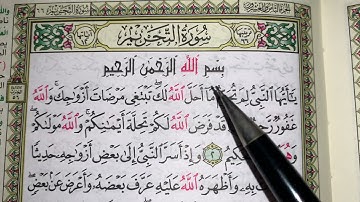 سُورَةُ التَّحْرِيمِ
بِسْمِ اللَّهِ الرَّحْمَٰنِ الرَّحِيمِ
يَٰٓأَيُّهَا النَّبِيُّ لِمَ مَآ أَحَلَّ اللَّهُ لَكَ تَبْتَغِى مَرْضَاتَ أَزْوَٰجِكَ وَاللَّهُ
غَفُورٌ قَدْ فَرَضَ اللَّهُ لَكُمْ تَحِلَّةَ أَيْمَٰنِكُمْ وَاللَّهُ مَوْلَىٰكُمْ
وَهُوَ ٢ وَإِذْ أَسَرَّ النَّبِيُّ إِلَىٰ بَعْضِ أَزْوَٰجِهِ حَدِيثًا
بِهِ وَأَظْهَرَهُ اللَّهُ عَلَيْهِ عَرَّفَ بَعْضَهُ وَأَعْرَضَ عَنْ بَعْضٍ